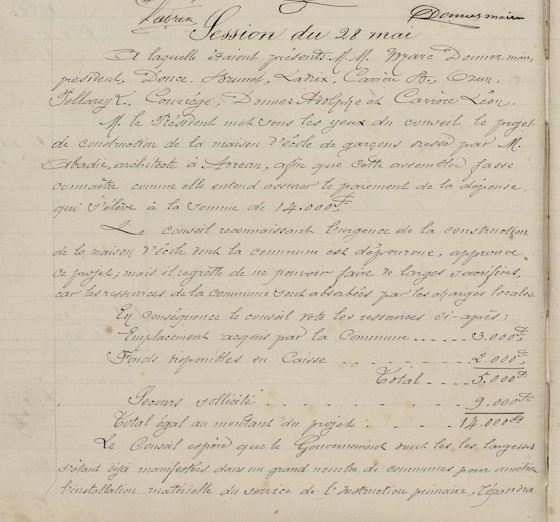 Ladrix Donnermaire
Session du 28 mai
A laquelle étaient présents M.M. Marc Donner maire,
président, Douce, Brunet, Ladrix, Carrère B.,
Courrége, Donner Adolphe et Carrère Léon.
M. le Président met sous les yeux du conseil le projet
de construction de la maison d'école de garçons dressé par M.
Abadie, architecte à Arreau, afin que cette assemblée fasse
connaître comme elle entend assurer le paiement de la dépense
qui s'élève à la somme de 14.000F.
Le Conseil reconnaissant l'urgence de la construction
de la maison d'école dont la commune est dépourvue, approuve
ce projet; mais il regrette de ne pouvoir faire de larges sacrifices,
car les ressources de la commune sont absorbées par les charges locales.
En conséquence le conseil vote les ressources ci-après:
Emplacement acquis par la Commune .... 3.000F.
Fonds disponibles en Caisse .... 2.000F.
Total .... 5.000F.
Secours sollicité . . . . 9.000F.
Total égal au montant du projet . . . . 14.000F.
Le Conseil espère que le Gouvernement dont les les largesses
s'étant déjà manifestées dans un grand nombre de communes pour améliorer
l'installation matérielle du service de l'Instruction primaire, répandra